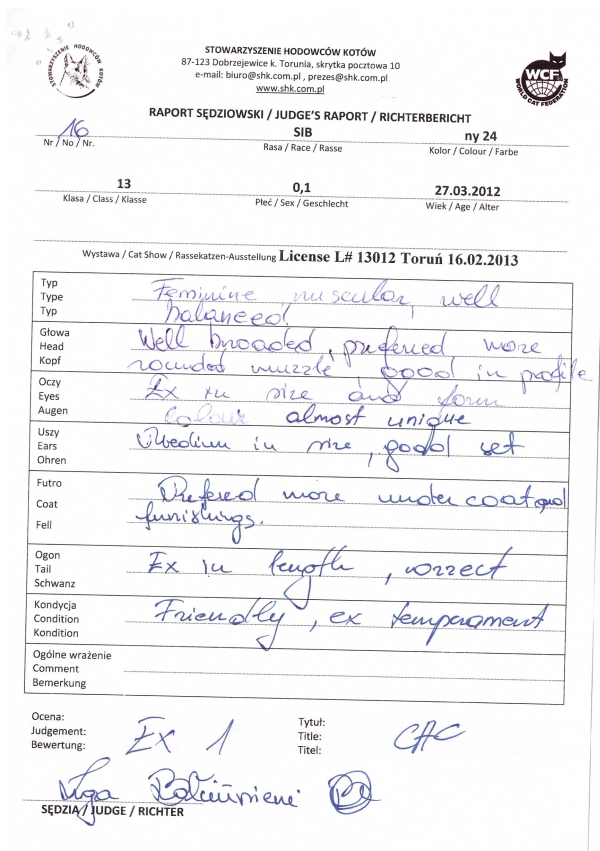 STOWARZYSZENIE HODOWCÓW KOTÓW
STOWARZYSZENIE HODOWCÓW KOTÓW
87-123 Dobrzejewice k. Torunia, skrytka pocztowa 10
e-mail: biuro@shk.com.pl , prezes@shk.com.pl
www.shk.com.pl
WCF
WORLD CAT FEDERATION
RAPORT SĘDZIOWSKI / JUDGE'S RAPORT / RICHTERBERICHT
16 SIB ny 24
Nr / No / Nr. Rasa / Race / Rasse Kolor / Colour / Farbe
13 0,1 27.03.2012
Klasa / Class / Klasse Płeć / Sex / Geschlecht Wiek / Age / Alter
Wystawa / Cat Show / Rassekatzen-Ausstellung License L# 13012 Toruń 16.02.2013
Typ
Type
Typ
Feminine, muscular, well
balanced
Głowa
Head
Kopf
Well broaded, preferred more
rounded muzzle good in profile
Oczy
Eyes
Augen
Ex in size and form
colour almost unique
Uszy
Ears
Ohren
Medium in size, good set
Futro
Coat
Fell
Prefered more undercoat and
furnishings.
Ogon
Tail
Schwanz
Ex in length, correct
Kondycja
Condition
Kondition
Friendly, ex temperament
Ogólne wrażenie
Comment
Bemerkung
Ocena:
Judgement:
Bewertung:
Ex 1
Tytuł:
Title:
Titel:
CAC
SĘDZIA / JUDGE / RICHTER